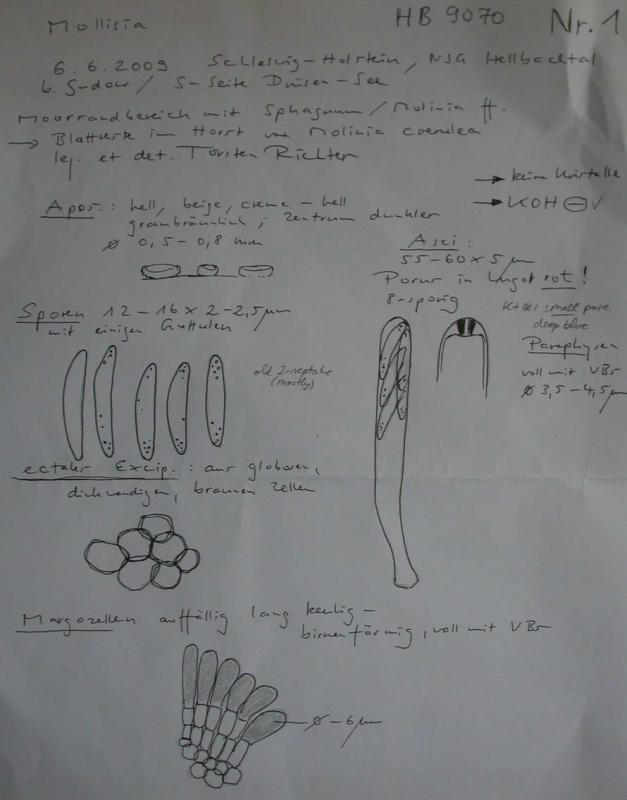 Mollisia
HB 9070
Nr. 1
6.6.2009 Schleswig-Holstein, NSG Hellbachtal
b. Gudow / S-Seite Drüsen-See
Moorrandbereich mit Sphagnum / Molinia ff.
→ Blattreste im Horst von Molinia coerulea
leg. et det. Torsten Richter
→ keine Kristalle
→ KOH ⊖ V
Apos.: hell, beige, creme - hell
graubräunlich; Zentrum dunkler
Ø 0,5 - 0,8 mm
Asci:
55-60 x 5 µm
Porus in Lugol rot!
8-sporig
Sporen 12-16 x 2-2,5 µm
mit einigen Guttulen
old 2-septate
(mostly)
small pore
deep blue
Paraphysen
voll mit VBs
Ø 3,5-4,5 µm
ectales Excip.: aus globosen,
dickwandigen, braunen Zellen
Margozellen auffällig lang keulig-
birnenförmig, voll mit VBs
Ø -6 µm